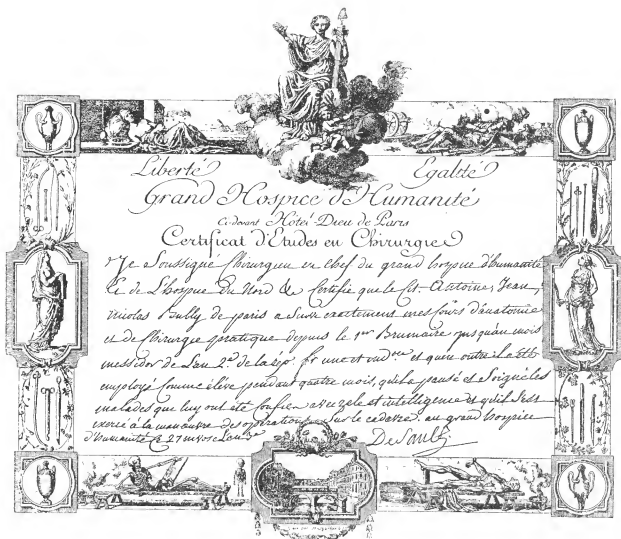 Liberté Egalité
Grand Hospice d'Humanité
Ci-devant Hôtel-Dieu de Paris
Certificat d'Etudes en Chirurgie
Je Soussigné Chirurgien en chef du grand hospice d'humanité
& de L'hospice du Nord & Certifie que le Cit. Antoine, Jean,
nicolas Bully de paris a Suivi exactement mes Cours d'anatomie
et de Chirurgie pratique depuis le 1er Brumaire jusqu'au mois
messidor de Lan 2e de la rép. fr. une et ind. et qu'en outre il a été
employé Comme élève pendant quatre mois, qu'il a pansé et Soigné les
malades que luy ont été Confiés avec zele et intelligence et qu'il s'est
exercé à la manœuvre des opérations sur le cadavre. au grand hospice
d'humanité Ce 27 nivose Lan 3e
Desault